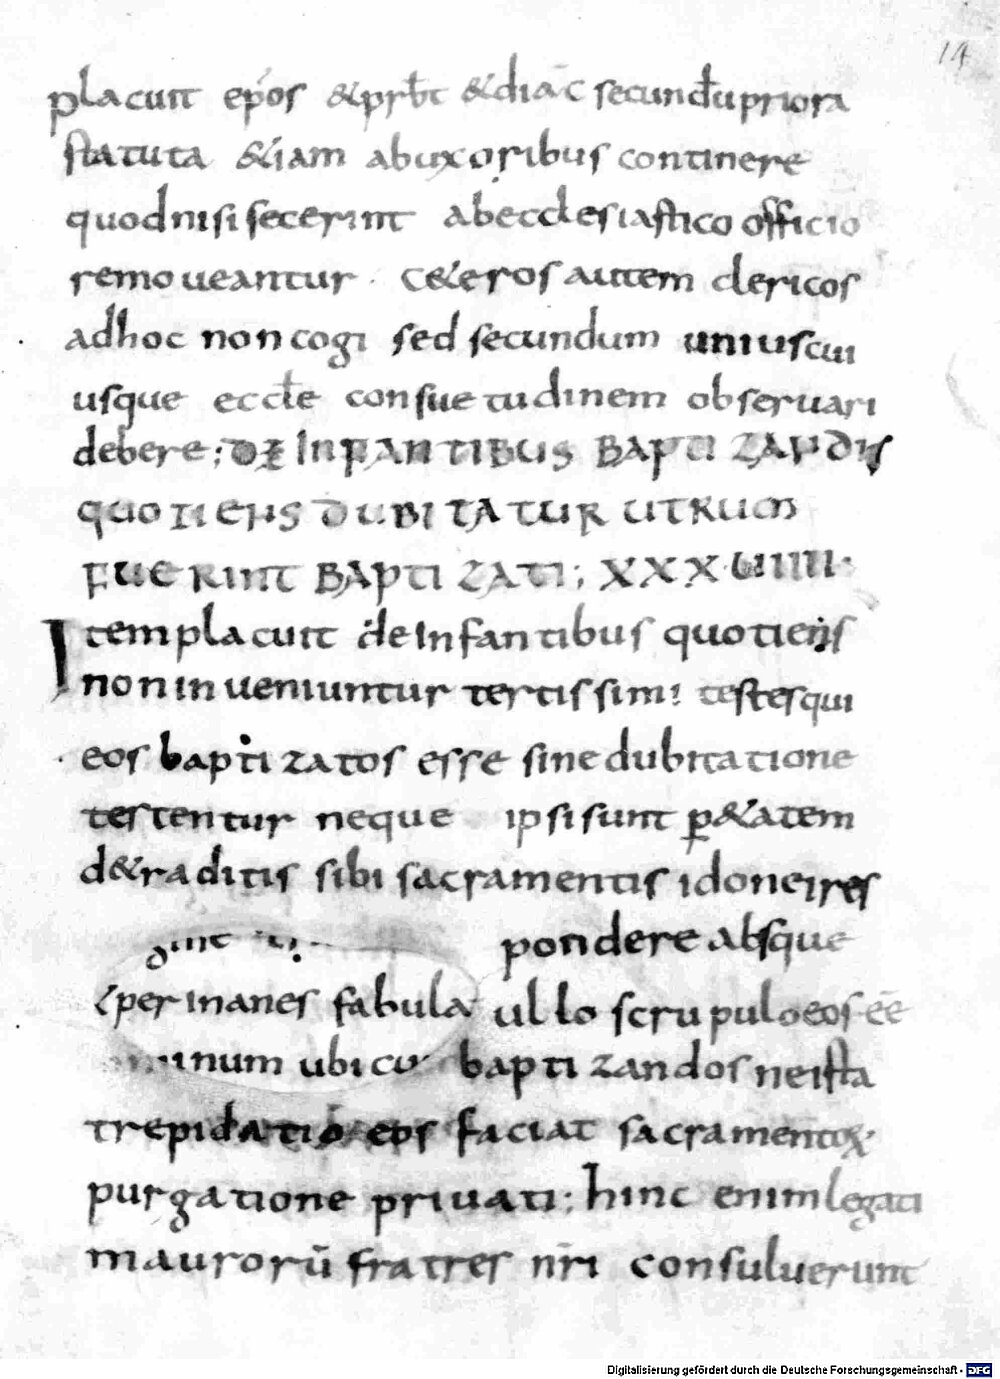 14
placuit ep̄os & prb̄t & diāc secund̄u priora
statuta &iam ab uxoribus continere
quod nisi fecerint ab ecclesiastico officio
remoueantur · C&eros autem clericos
ad hoc non cogi sed secundum uniuscui
usque eccl̄e consuetudinem obseruari
debere; DE INFANTIBUS BAPTIZANDIS
QUOTIENS DUBITATUR UTRUM
FUERINT BAPTIZATI; XXXUIIII·
Item placuit de infantibus quotiens
non inueniuntur tertissimi testes qui
eos baptizatos esse sine dubitatione
testentur neque ipsi sunt p̱ &atem
d&raditis sibi sacramentis idonei res
pondere absque
per inanes fabula ullo scrupulo eos ēe
num ubi baptizandos ne ista
trepidatio eos faciat sacramentoꝝ·
purgatione priuati; hinc enim legati
maurorū fratres nr̄i consuluerunt
Digitalisierung gefördert durch die Deutsche Forschungsgemeinschaft - DFG